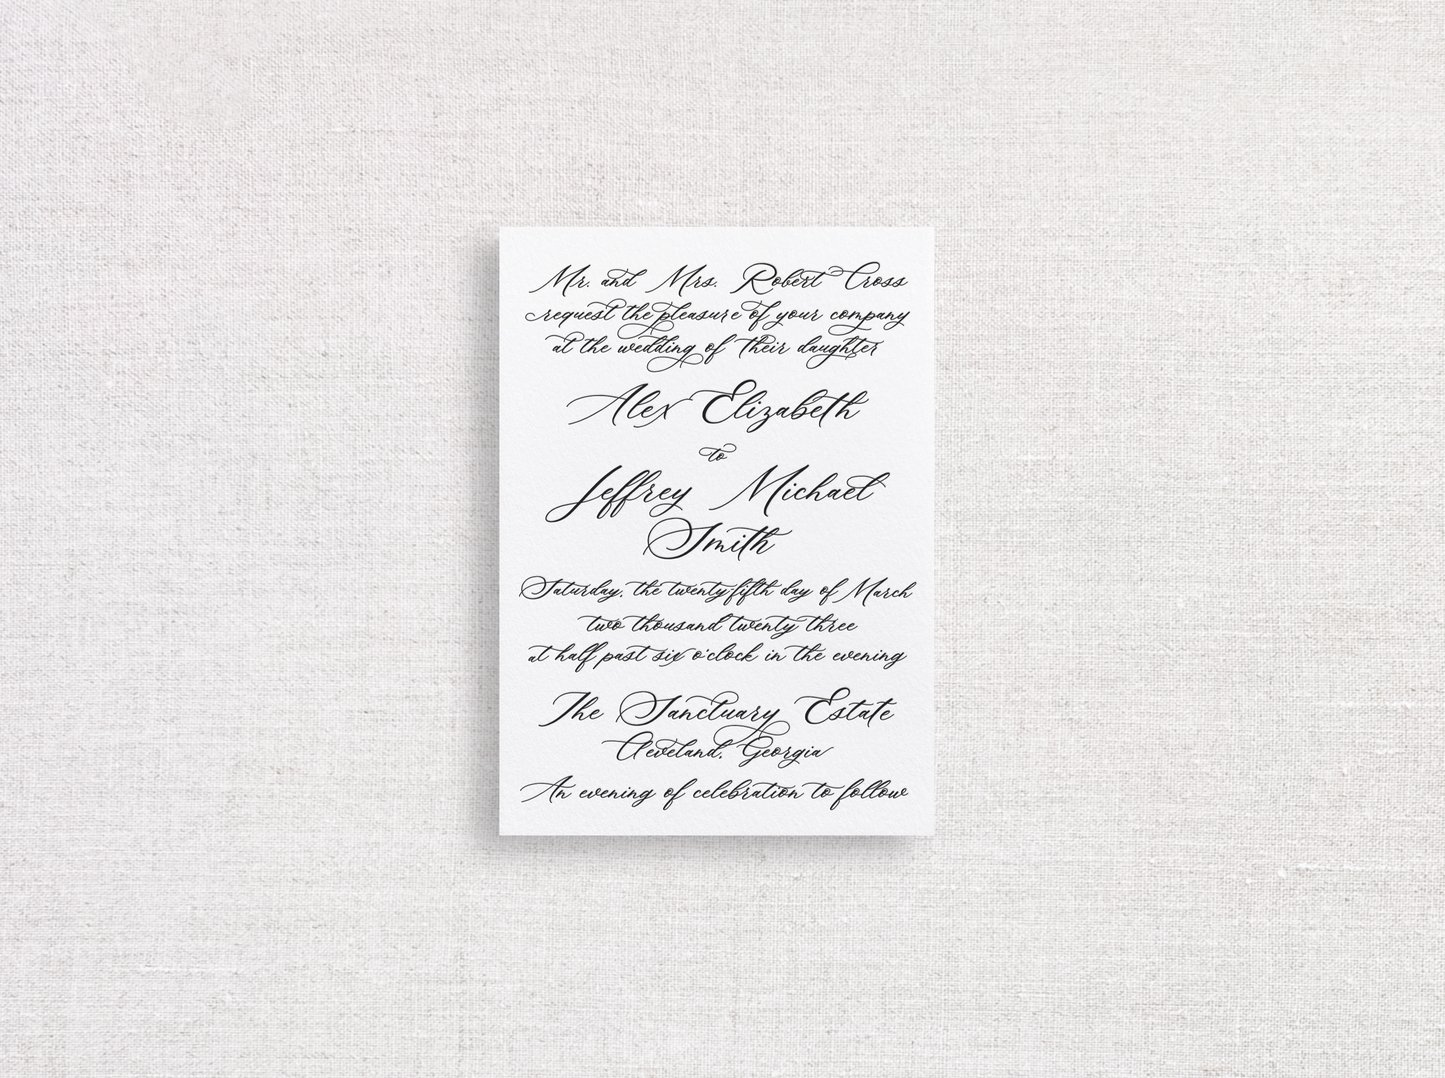 Mr. and Mrs. Robert Cross
request the pleasure of your company
at the wedding of their daughter
Alex Elizabeth
to
Jeffrey Michael
Smith
Saturday, the twenty-fifth day of March
two thousand twenty three
at half past six o'clock in the evening
The Sanctuary Estate
Cleveland, Georgia
An evening of celebration to follow